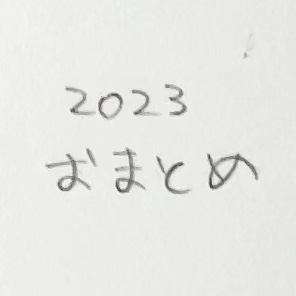 2023
おまとめ